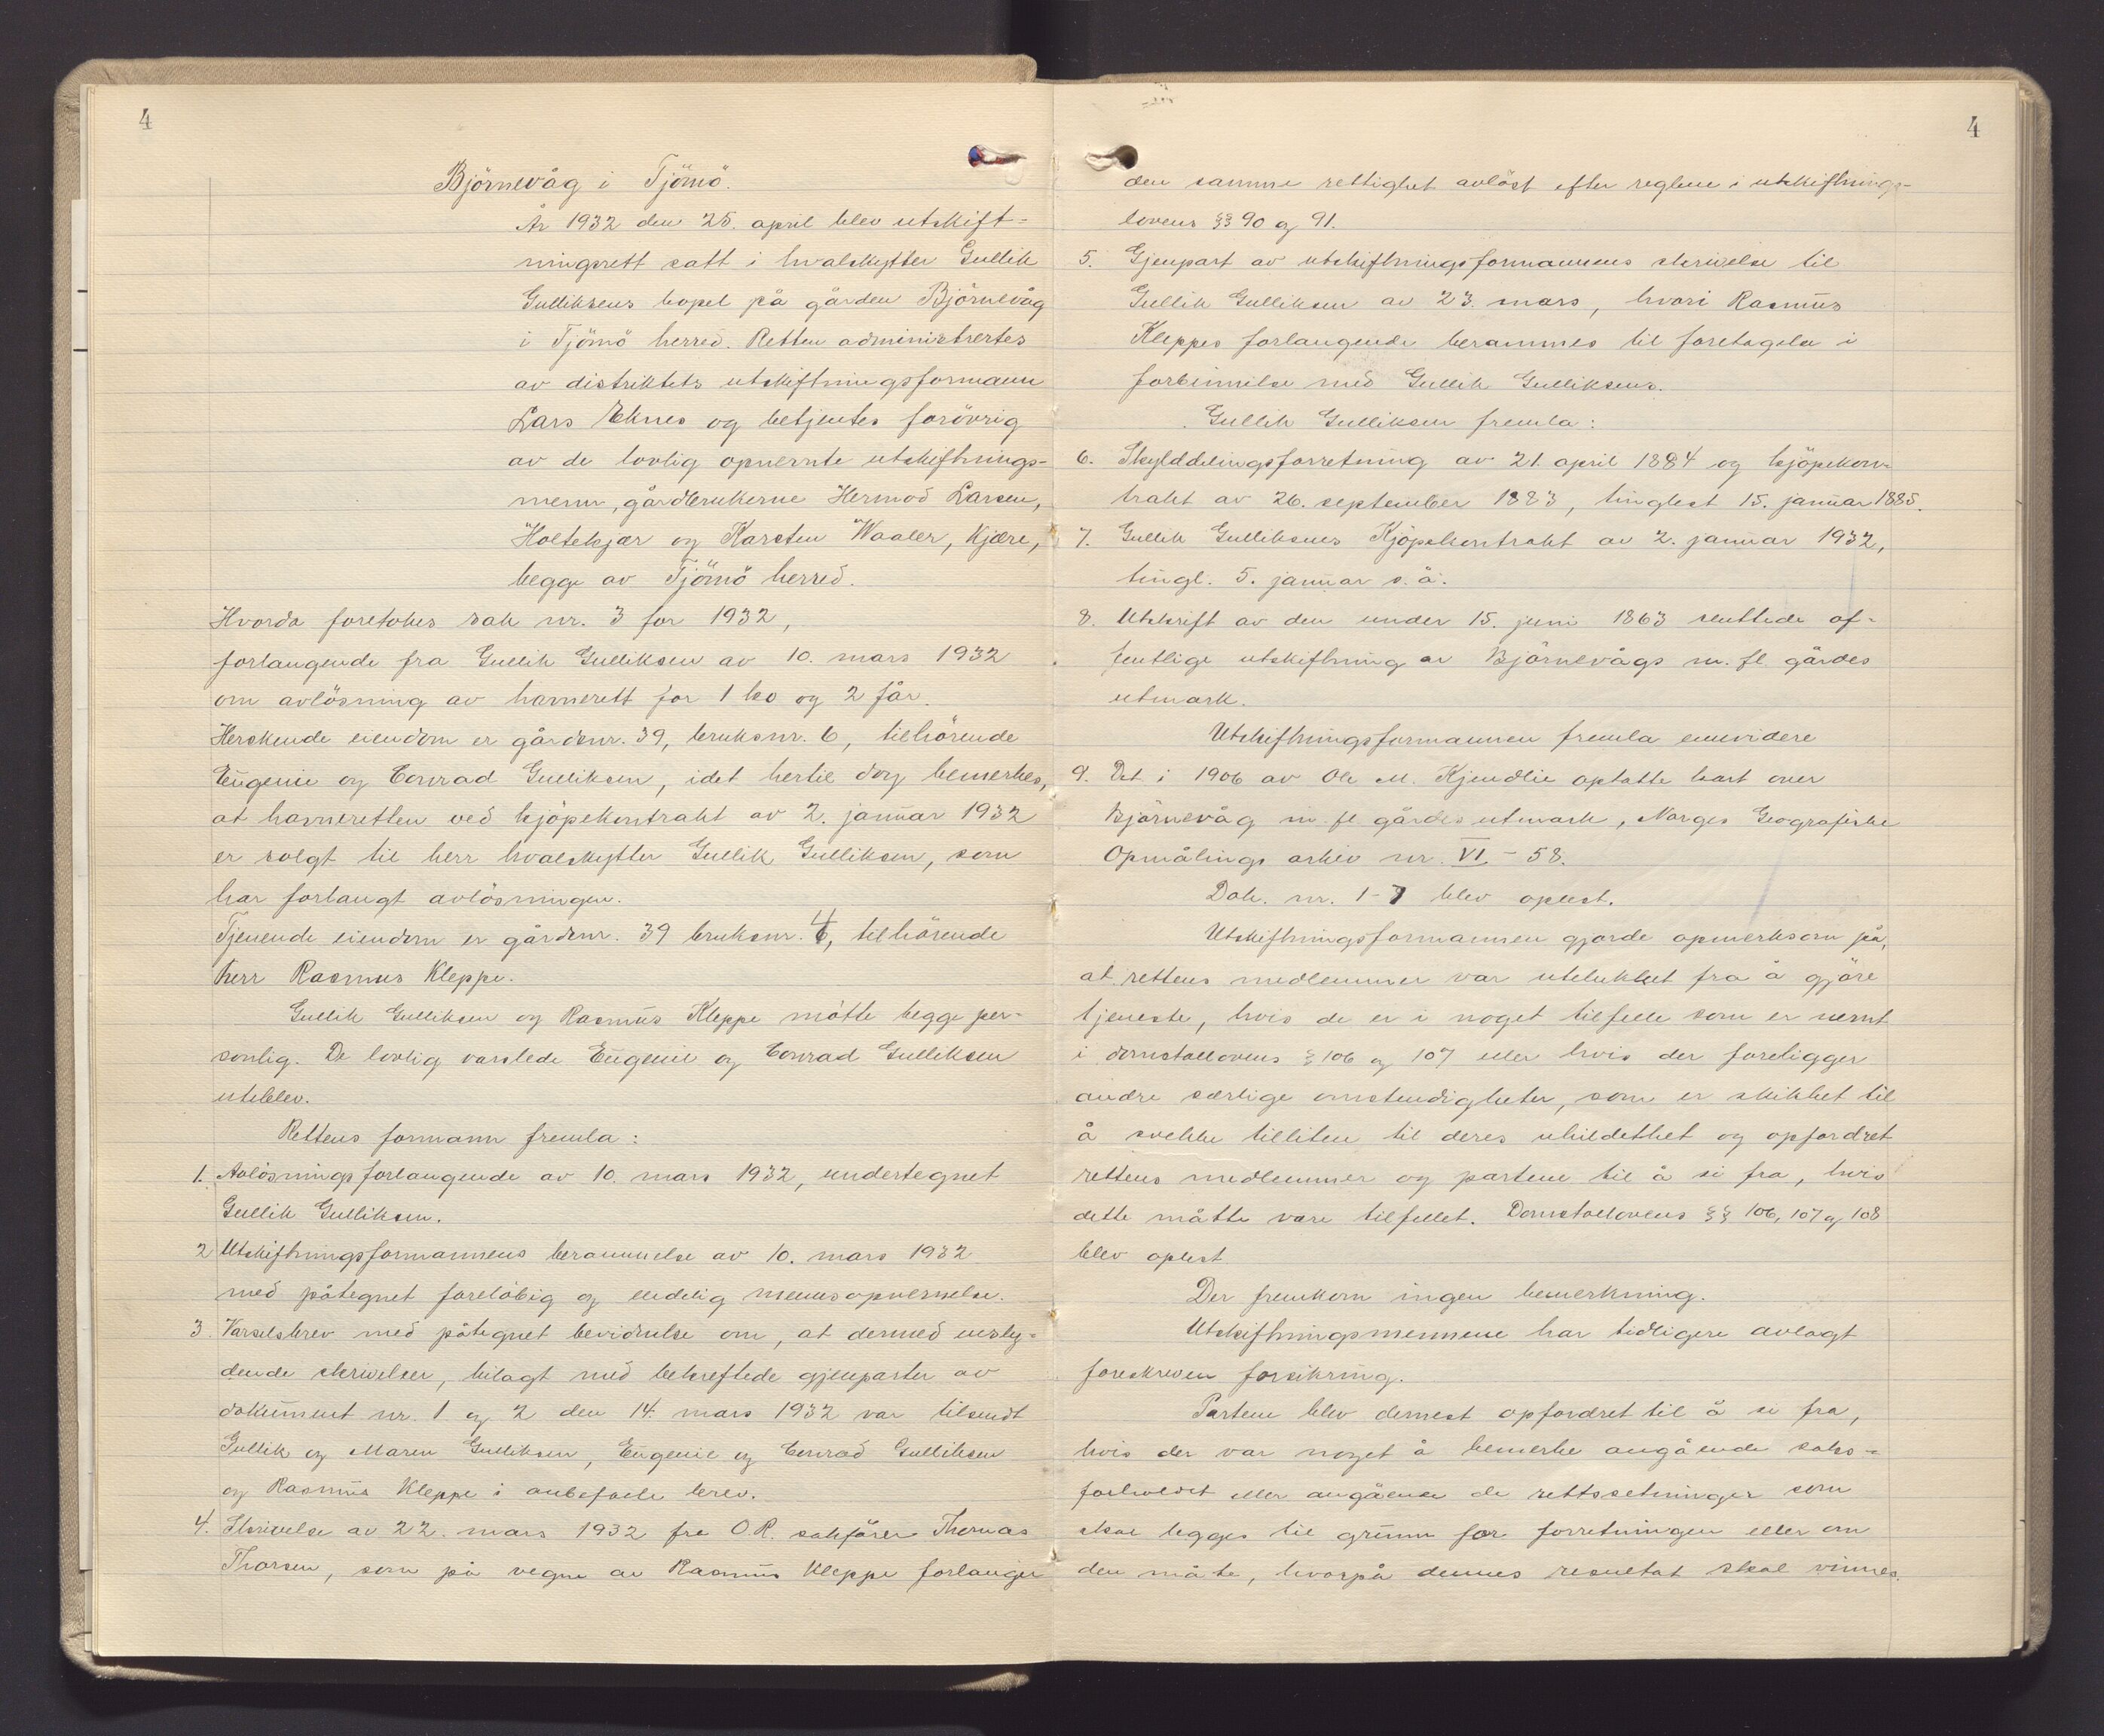 4
Björnevåg i Tjömö.
År 1932 den 25. april blev utskift-
ningsrett satt i hvalskytter Gullik
Gulliksens bopel på gården Björnevåg
i Tjömö herred. Retten administrertes
av distriktets utskiftningsformann
Lars Eknes og betjentes forövrig
av de lovlig opnevnte utskiftnings-
menn, gårdbrukerne Hermod Larsen,
Holtekjær og Karsten Waaler, Kjære,
begge av Tjömö herred.
Hvorda foretokes sak nr. 3 for 1932,
forlangende fra Gullik Gulliksen av 10. mars 1932
om avlösning av havnerett for 1 ko og 2 får.
Herskende eiendom er gårdsnr. 39, bruksnr. 6, tilhörende
Eugenie og Conrad Gulliksen, idet hertil dog bemerkes,
at havneretten ved kjöpekontrakt av 2. januar 1932
er solgt til herr hvalskytter Gullik Gulliksen, som
har forlangt avlösningen.
Tjenende eiendom er gårdsnr. 39 bruksnr. 4, tilhörende
herr Rasmus Kleppe.
Gullik Gulliksen og Rasmus Kleppe mötte begge per-
sonlig. De lovlig varslede Eugenie og Conrad Gulliksen
uteblev.
Rettens formann fremla:
1. Avlösningsforlangende av 10. mars 1932, undertegnet
Gullik Gulliksen.
2 Utskiftningsformannens berammelse av 10. mars 1932
med påtegnet foreløbig og endelig mennsopnevnelse.
3. Varselsbrev med påtegnet bevidnelse om, at dermed ensly-
dende skrivelser, bilagt med bekreftede gjenparter av
dokument nr. 1 og 2 den 14. mars 1932 var tilsendt
Gullik og Maren Gulliksen, Eugenie og Conrad Gulliksen
og Rasmus Kleppe i anbefalt brev.
4. Skrivelse av 22. mars 1932 fra O.R. sakförer Thomas
Thorsen, som på vegne av Rasmus Kleppe forlanger
4
den samme rettighet avlöst efter reglene i utskiftnings-
lovens §§ 90 og 91.
5. Gjenpart av utskiftningsformannens skrivelse til
Gullik Gulliksen av 23. mars, hvori Rasmus
Kleppes forlangende berammes til foretagelse i
forbinnelse med Gullik Gulliksens.
Gullik Gulliksen fremla:
6. Skylddelingsforretning av 21. april 1884 og kjöpekon-
trakt av 26. september 1883, tinglest 15. januar 1885.
7. Gullik Gulliksens Kjöpekontrakt av 2. januar 1932,
tingl. 5. januar s. å.
8. Utskrift av den under 15. juni 1863 sluttede of-
fentlige utskiftning av Björnevågs m. fl. gårdes
utmark.
Utskiftningsformannen fremla ennvidere
9. Det i 1906 av Ole M. Kjendlie optatte kart over
Björnevåg m. fl. gårdes utmark, Norges Geografiske
Opmålings arkiv nr. VI - 58.
Dok. nr. 1-7 blev oplest.
Utskiftningsformannen gjorde opmerksom på,
at rettens medlemmer var utelukket fra å gjöre
tjeneste, hvis de er i noget tilfelle som er nevnt
i domstollovens § 106 og 107 eller hvis der foreligger
andre særlige omstendigheter, som er skikket til
å svekke tilliten til deres uhildethet og opfordret
rettens medlemmer og partene til å si fra, hvis
dette måtte være tilfellet. Domstollovens §§ 106, 107 og 108
blev oplest
Der fremkom ingen bemerkning.
Utskiftningsmennene har tidligere avlagt
foreskreven forsikring.
Partene blev dernest opfordret til å si fra,
hvis der var noget å bemerke angående saks-
forholdet eller angående de rettssetninger som
skal legges til grunn for forretningen eller om
den måte, hvorpå dennes resultat skal vinnes.